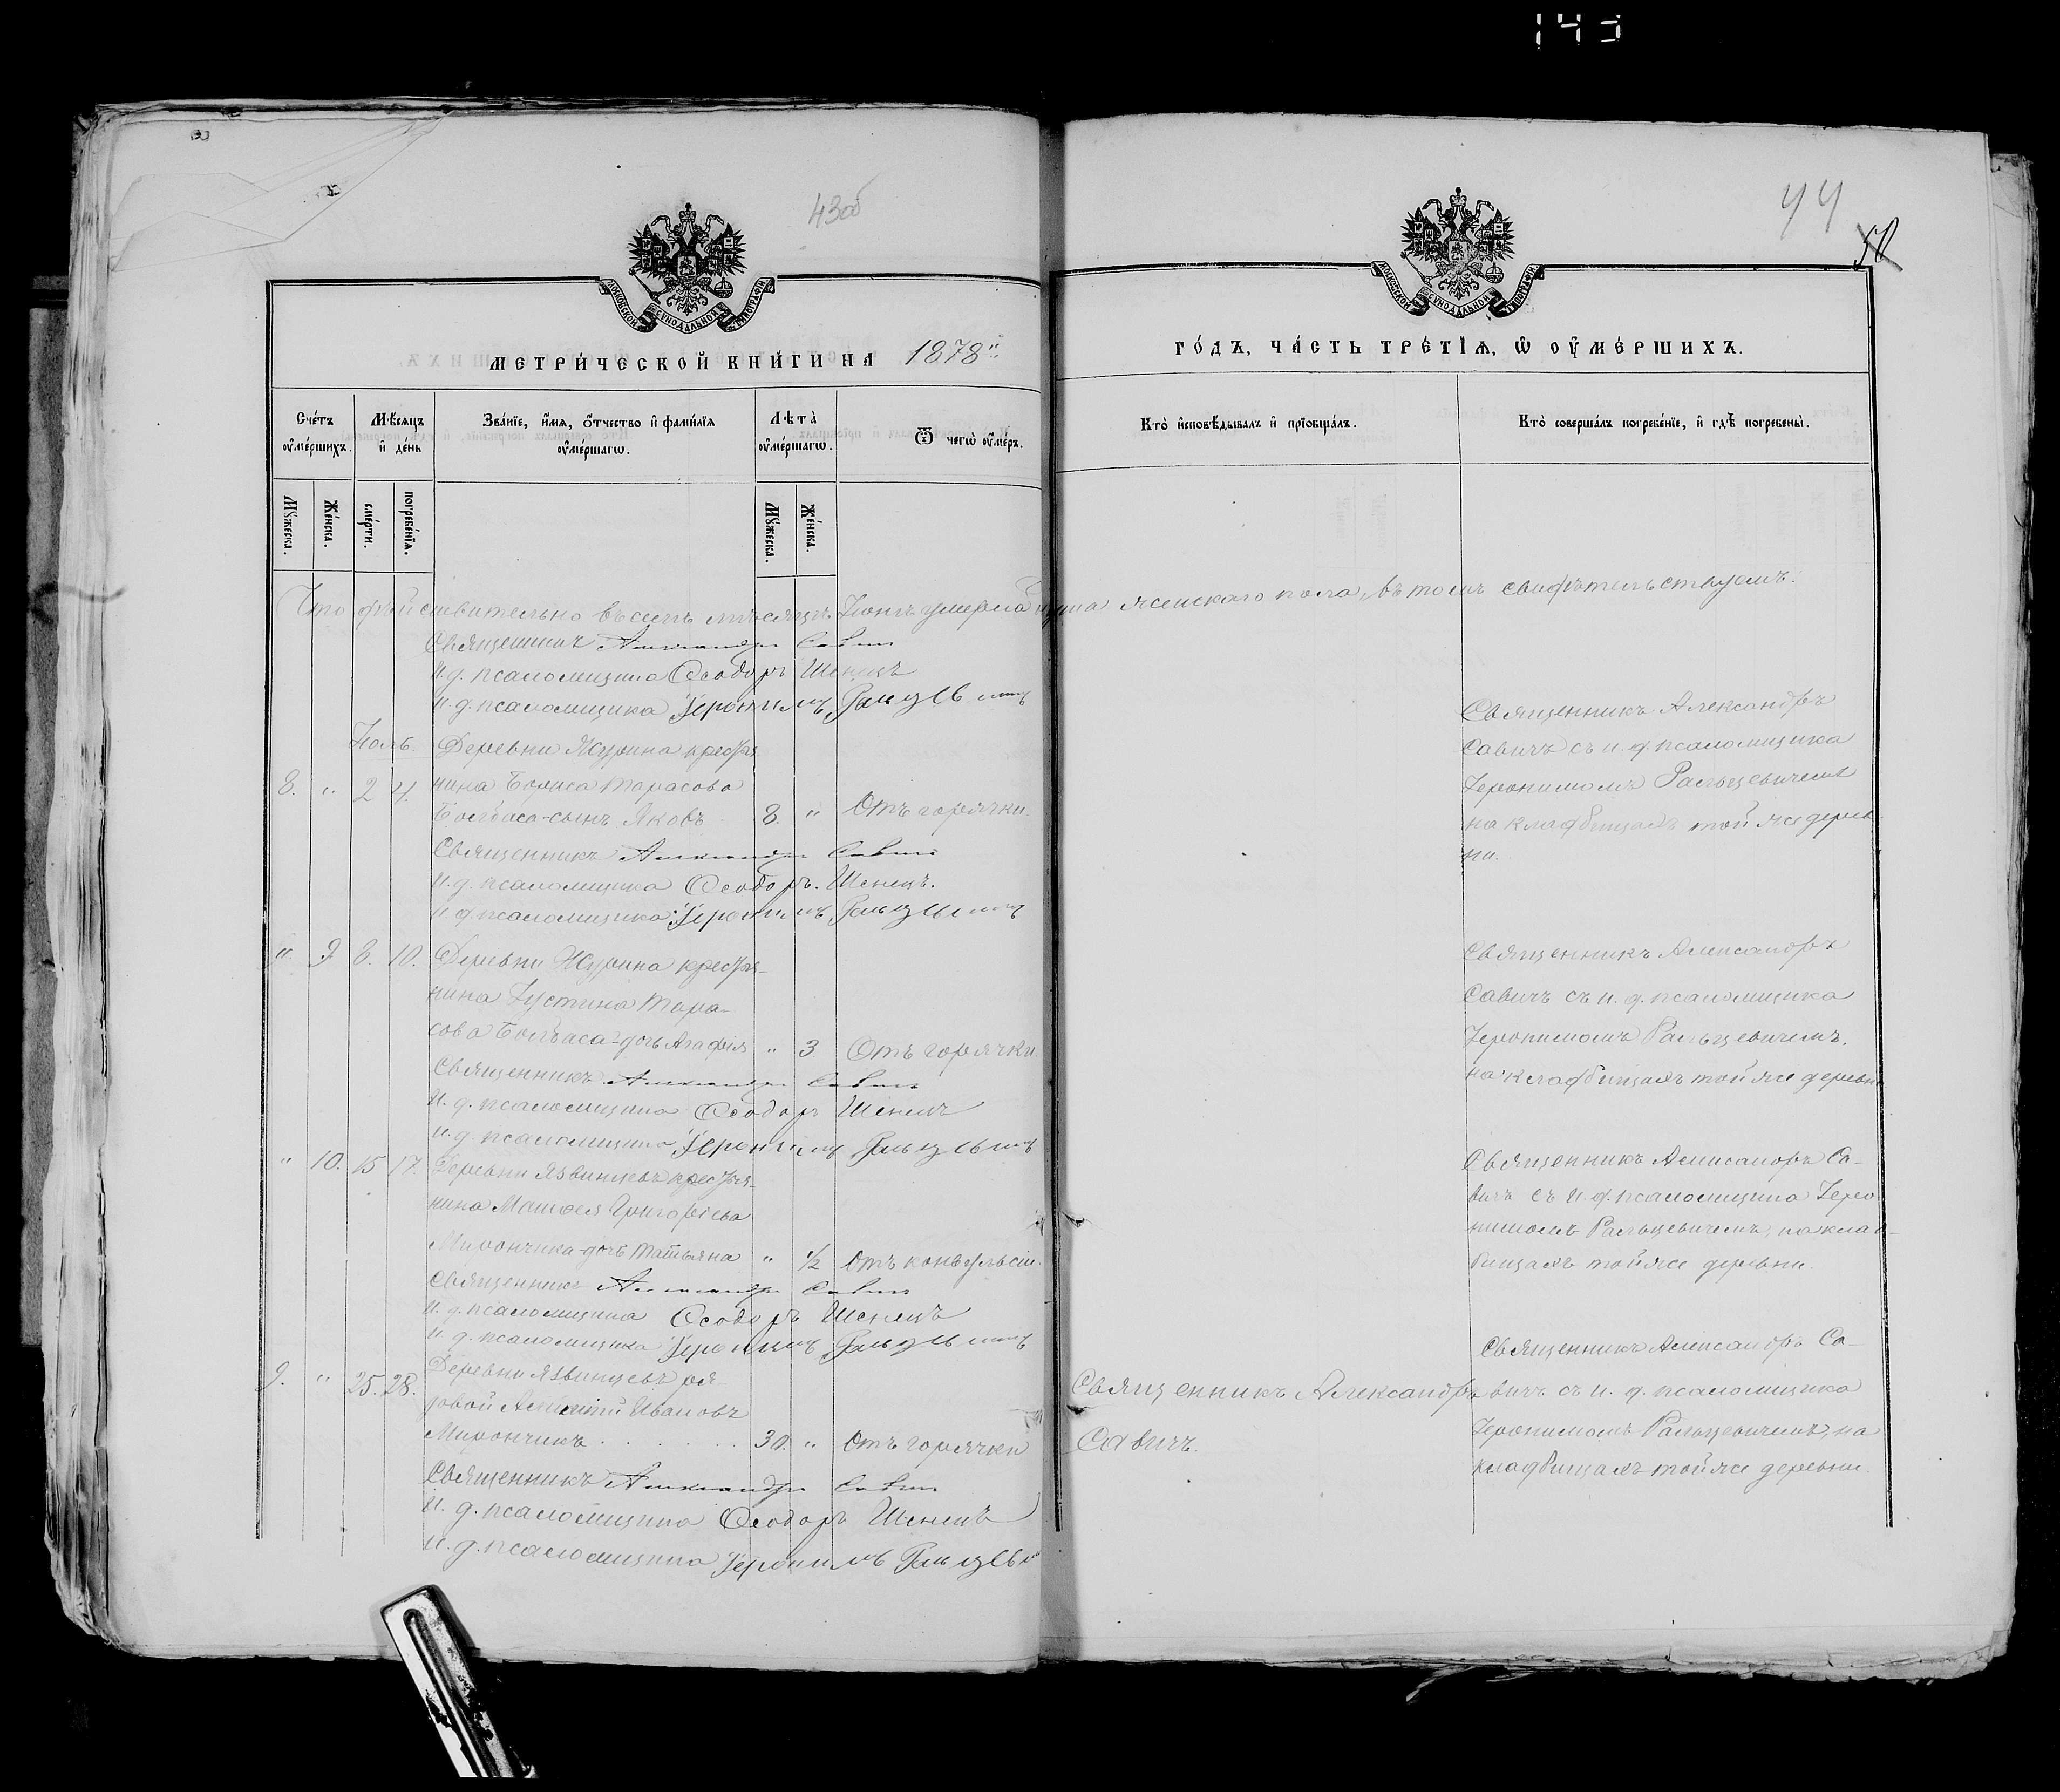 43 об
44
50
МОСКОВСКОЙ СѴНОДАЛЬНОЙ ТИПОГРАФІИ
МОСКОВСКОЙ СѴНОДАЛЬНОЙ ТИПОГРАФІИ
МЕТРИ́ЧЕСКОЙ КНИ́ГИ НА 1878й
ГО́ДЪ, ЧА́СТЬ ТРЕ́ТІѦ, Ѡ ОУМЕ́РШИХЪ.
Сче́тъ оумершихъ.
Мѣсяцъ и день
Зва́нїе, имя, отчество и фами́лїя оумершагѡ.
Лѣта оумершагѡ.
Ѿ чегѡ оумеръ.
Кто исповѣдывалъ и прїобщалъ.
Кто совершалъ погребенїе, и гдѣ погребены.
Мужеска.
Женска.
смерти.
погребенїя.
Мужеска.
Женска.
Что дѣйствительно въ семъ мѣсяцѣ Іюнѣ умерла душа женскаго пола, въ томъ свидѣтельствуемъ.
Священникъ Александръ Савичъ
И. д. псаломщика Ѳеодоръ Шенецъ
и. д. псаломщика Іеронимъ Ральцевичъ
Іюль.
8. " 2 4.
Деревни Журина крестья
нина Бориса Тарасова
Болбаса-сынъ Яковъ 8. " Отъ горячки.
Священникъ Александръ
Савичъ съ и. д. псаломщика
Іеронимомъ Ральцевичемъ
на кладбищахъ той же дерев
ни.
Священникъ Александръ Савичъ
И. д. псаломщика Ѳеодоръ Шенецъ.
и. д. псаломщика Іеронимъ Ральцевичъ
" 9 8. 10. Деревни Журина крестья-
нина Іустина Тара-
сова Болбаса-дочь Агафія " 3 Отъ горячки
Священникъ Александръ
Савичъ съ и. д. псаломщика
Іеронимомъ Ральцевичемъ.
на кладбищахъ той же деревни
Священникъ Александръ Савичъ
И. д. псаломщика Ѳеодоръ Шенецъ
и. д. псаломщика Іеронимъ Ральцевичъ
" 10. 15 17. Деревни Язвинцевъ крестья-
нина Григорьева
Мирончика-дочь Татьяна " 1/2 Отъ конвульсіи.
Священникъ Александръ Са-
вичъ съ и. д. псаломщика Іеро
нимомъ Ральцевичемъ, на клад-
бищахъ той же деревни.
Священникъ Александръ Савичъ
И. д. псаломщика Ѳеодоръ Шенецъ
и. д. псаломщика Іеронимъ Ральцевичъ
9. " 25. 28. Деревни Язвинцевъ ря-
довой Ивановъ
Мирончикъ 30. " Отъ горячки
Священникъ Александръ
Савичъ.
Священникъ Александръ Са-
вичъ съ и. д. псаломщика
Іеронимомъ Ральцевичемъ, на
кладбищахъ той же деревни.
Священникъ Александръ Савичъ
И. д. псаломщика Ѳеодоръ Шенецъ
и. д. псаломщика Іеронимъ Ральцевичъ